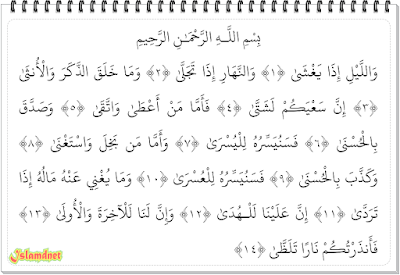 بِسْمِ اللَّـهِ الرَّحْمَـٰنِ الرَّحِيمِ
وَاللَّيْلِ إِذَا يَغْشَىٰ ﴿١﴾ وَالنَّهَارِ إِذَا تَجَلَّىٰ ﴿٢﴾ وَمَا خَلَقَ الذَّكَرَ وَالْأُنثَىٰ
﴿٣﴾ إِنَّ سَعْيَكُمْ لَشَتَّىٰ ﴿٤﴾ فَأَمَّا مَنْ أَعْطَىٰ وَاتَّقَىٰ ﴿٥﴾ وَصَدَّقَ
بِالْحُسْنَىٰ ﴿٦﴾ فَسَنُيَسِّرُهُ لِلْيُسْرَىٰ ﴿٧﴾ وَأَمَّا مَن بَخِلَ وَاسْتَغْنَىٰ ﴿٨﴾
وَكَذَّبَ بِالْحُسْنَىٰ ﴿٩﴾ فَسَنُيَسِّرُهُ لِلْعُسْرَىٰ ﴿١٠﴾ وَمَا يُغْنِي عَنْهُ مَالُهُ إِذَا
تَرَدَّىٰ ﴿١١﴾ إِنَّ عَلَيْنَا لَلْـهُدَىٰ ﴿١٢﴾ وَإِنَّ لَنَا لَلْآخِرَةَ وَالْأُولَىٰ ﴿١٣﴾
فَأَنذَرْتُكُمْ نَارًا تَلَظَّىٰ ﴿١٤﴾
Islamdnet